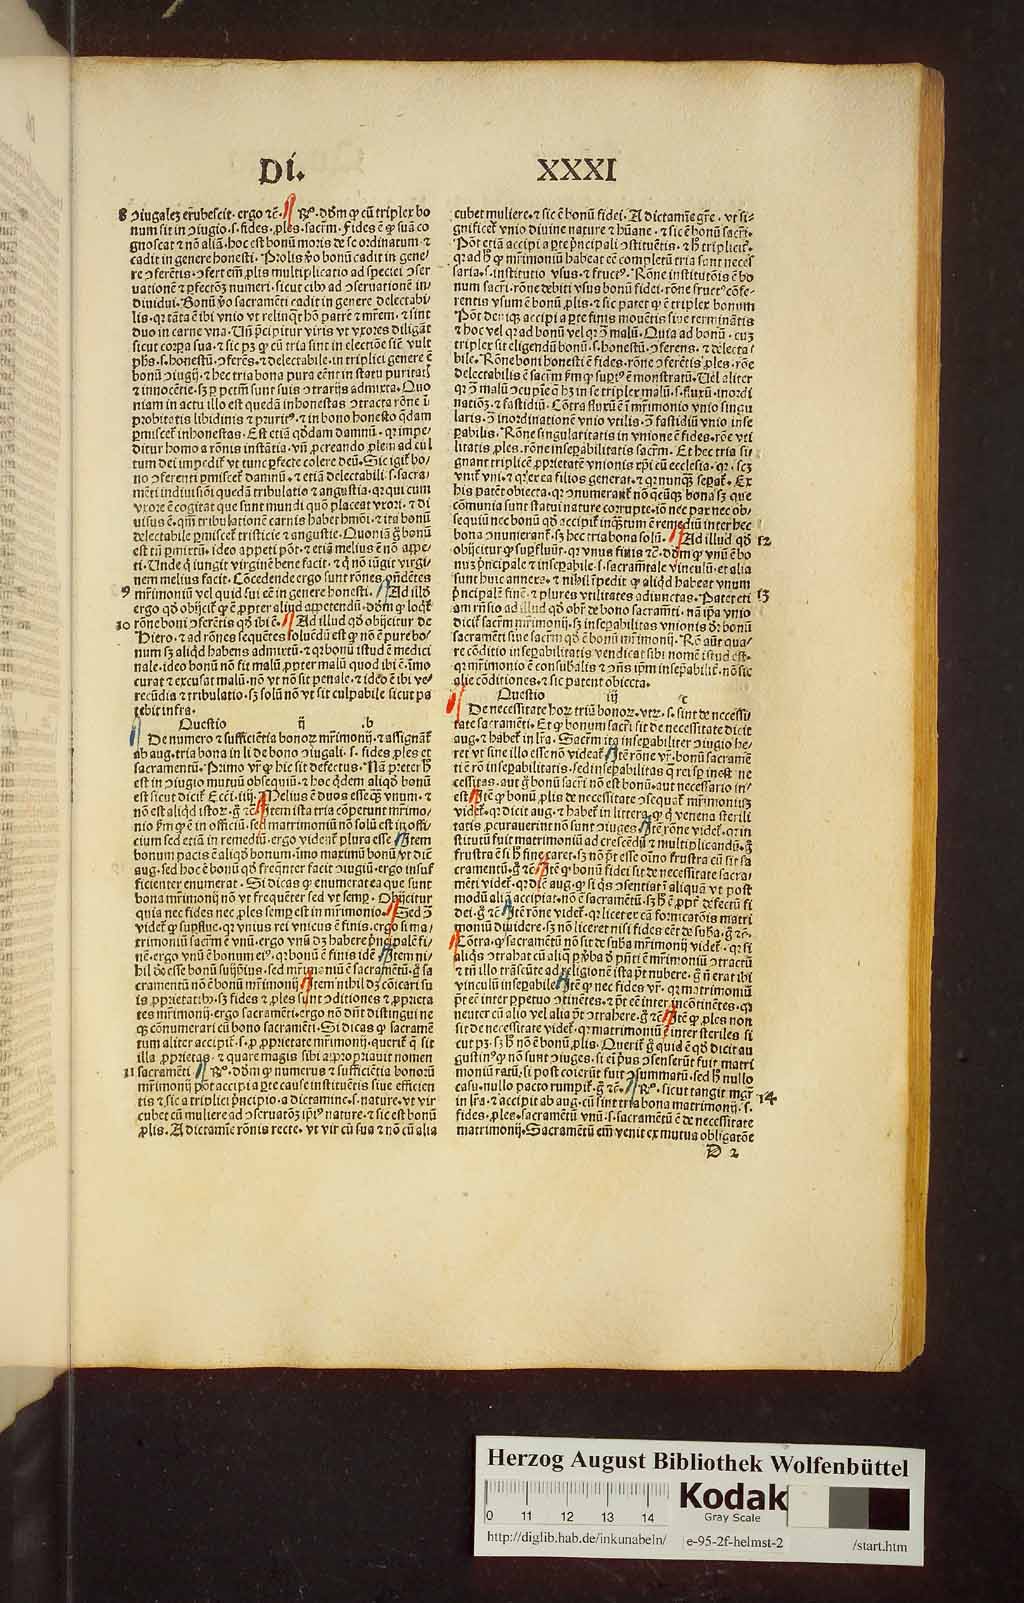 Di. XXXI
8 ↄiugalez erubescit. ergo ⁊c̄. Rº. dd̄m ꝙ cū triplex bo
num sit in ↄiugio .s. fides. ꝓles. sacr̄m. Fides ē ꝙ suā co
gnoscat ⁊ nō aliā. hoc est bonū moris de se ordinatum. ⁊
cadit in genere honesti. Prolis v̄o bonū cadit in gene/
re ↄferētis. ↄfert em̄ ꝓlis multiplicatio ad speciei ↄser
uationē ⁊ ꝑfectōꝫ numeri. sicut cib ad ↄseruationē in/
diuidui. Bonū v̄o sacramēti cadit in genere delectabi/
lis. qꝛ tāta ē ibi vnio vt relinqt hō patrē ⁊ mr̄em. ⁊ sint
duo in carne vna. Un̄ p̄cipitur viris vt vxores diligāt
sicut corꝑa sua. ⁊ sic pꝫ ꝙ cū tria sint in electiōe siē vult
ph̄s .s. honestū. ↄferēs. ⁊ delectabile. in triplici genere ē
bonū ↄiugij. ⁊ hec tria bona pura eēnt in statu puritat
⁊ innocētie. sꝫ ꝑ pctm̄ sunt suis ↄtrarijs admixta. Quo
niam in actu illo est quedā inhonestas ↄtracta rōne i
ꝓbitatis libidinis ⁊ pruritꝰ. ⁊ in bono honesto q̄dam
ꝑmiscet inhonestas. Est etiā qd̄dam damnū. qꝛ impe/
ditur homo a rōnis instātia. vn̄ ꝓcreando ꝓlem ad cul
tum dei impedit vt tunc ꝑfecte colere deū. Sic igit bo/
no ↄferenti ꝑmiscet damnū. ⁊ etiā delectabili .s. sacra/
mēti indiuisōi quedā tribulatio ⁊ angustia. qꝛ qui cum
vxore ē cogitat que sunt mundi quō placeat vxori. ⁊ di
uisus ē. qm̄ tribulationē carnis habet hmōi. ⁊ ita bonū
delectabile ꝑmiscet tristicie ⁊ angustie. Quoniā g̊ bonū
est tū ꝑmixtū. ideo appeti pōt. ⁊ etiā melius ē nō appe/
ti. Unde q iungit virginē bene facit. ⁊ q nō iūgit virgi/
nem melius facit. Cōcedende ergo sunt rōnes
9 mr̄imoniū vel quid sui eē in genere honesti. Ad illd
ergo qd̄ obijcit ꝙ ē ꝓpter aliud appetendū. dd̄m ꝙ loqt
10 rōne boni ↄferētis qd̄ ibi ē. Ad illud qd̄ obijcitur de
Hiero. ⁊ ad rōnes sequētes soluēdū est ꝙ nō ē pure bo/
num sꝫ aliqd habens admixtū. ⁊ qꝛ bonū istud ē medici
nale. ideo bonū nō fit malū ꝓpter malū quod ibi ē. imo
curat ⁊ excusat malū. nō vt nō sit penale. ⁊ ideo ē ibi ve/
recūdia ⁊ tribulatio. sꝫ solū nō vt sit culpabile sicut pa
tebit infra.
Questio ij .b
De numero ⁊ sufficētia bonoꝝ mr̄imonij. ⁊ assignat
ab aug. tria bona in li de bono ↄiugali .s. fides ꝓles et
sacramentū. Primo vr̄ ꝙ hic sit defectus. Nā preter h̄
est in ↄiugio mutuū obsequiū. ⁊ hoc qdem aliqd bonū
est sicut dicit Ecci. iiij. Melius ē duos esse qꝫ vnum. ⁊
nō est aliqd istoꝝ. g̊ ⁊c̄ Item ista tria cōpetunt mr̄imo/
nio ẜm ꝙ ē in officiū. sed matrimoniū nō solū est in offi/
cium sed etiam in remediū. ergo vident plura esse Item
bonum pacis ē aliqd bonum. imo maximū bonū vt dic
aug. sed hoc ē bonū qd̄ freqnter facit ↄiugiū. ergo insuf
ficienter enumerat. Si dicas ꝙ enumerat ea que sunt
bona mr̄imonij nō vt frequēter sed vt semꝑ. Obijcitur
quia nec fides nec ꝓles semꝑ est in mr̄imonio. Sed ↄ̄
videt ꝙ suꝑflue. qꝛ vnius rei vnicus ē finis. ergo si ma/
trimoniū sacr̄m ē vnū. ergo vnū dꝫ habere prīcipalē fi/
nē. ergo vnū ē bonum eiꝰ. qꝛ bonū ⁊ finis idē Item ni/
hil v̄o esse bonū suijpsius. sed mr̄imoniū ē sacramētū. g̊ sa
cramentū nō ē bonū mr̄imonij Item nihil dꝫ cōicari su
is ꝓprietatibꝰ. sꝫ fides ⁊ ꝓles sūt ↄditiones ⁊ ꝓprieta
tes mr̄imonij. ergo sacramēti. ergo nō dn̄t distingui ne
qꝫ cōnumerari cū bono sacramēti. Si dicas ꝙ sacramē
tum aliter accipit .s. ꝓ ꝓprietate mr̄imonij. querit q sit
illa ꝓprietas. ⁊ quare magis sibi appropriauit nomen
11 sacramēti Rº. dd̄m ꝙ numerus ⁊ sufficētia bonorū
mr̄imonij pōt accipi a ꝑte cause instituētis siue efficien
tis ⁊ sic a triplici p̄ncipio. a dictamine .s. nature. vt vir
cubet cū muliere ad ↄseruatōꝫ ip̄iꝰ nature. ⁊ sic est bonū
ꝓlis. A dictamīe rōnis recte. vt vir cū sua ⁊ nō cū alia
cubet muliere. ⁊ sic ē bonū fidei. A dictamīe . vt si/
gnificet vnio diuine nature ⁊ hūane. ⁊ sic ē bonū sacr̄i.
Pōt etiā accipi a ꝑte p̄ncipali ↄstituētis. ⁊ h̄ triplicit.
qꝛ ad h̄ ꝙ mr̄imoniū habeat eē completū tria sunt neces
saria .s. institutio vsus. ⁊ fructꝰ. Rōne institutōis ē bo
num sacr̄i. rōne debiti vsus bonū fidei. rōne fructꝰ cōfe/
rentis vsum ē bonū ꝓlis. ⁊ sic patet ꝙ ē triplex bonum
Pōt deniqꝫ accipi a ꝑte finis mouētis siue terminātis
⁊ hoc vel qꝛ ad bonū vel qꝛ ↄ̄ malū. Quia ad bonū. cuꝫ
triplex sit eligendū bonū .s. honestū. ↄferens. ⁊ delecta/
bile. Rōne boni honesti ē fides. rōne ↄferētis ꝓles. rōe
delectabilis ē sacr̄m ẜm ꝙ supriꝰ ē monstratū. Uel aliter
qꝛ ↄ̄ malū ↄcupīe q hꝫ in se triplex malū .s. fluxū. inordi
nationē. ⁊ fastidiū. Cōtra fluxū ē ī mr̄imonio vnio singu
laris. ↄ̄ inordinationē vnio vtilis. ↄ̄ fastidiū vnio inse
ꝑabilis. Rōne singularitatis in vnione ē fides. rōe vti
litatis ꝓles. rōne inseꝑabilitatis sacr̄m. Et hec tria si/
gnant triplicē ꝓprietatē vnionis xp̄i cū ecclesia. qꝛ .scꝫ
vnit vni. ⁊ qꝛ ex ea filios generat. ⁊ qꝛ nunqꝫ seꝑat. Ex
his patēt obiecta. qꝛ ↄnumerant nō qēcūqꝫ bona sꝫ que
cōmunia sunt statui nature corrupte. iō nec pax nec ob/
sequiū nec bonū qd̄ accipit inqꝫtum ē remediū inter hec
bona ↄnumerant. sꝫ hec tria bona solū. Ad illud qd̄ 12
obijcitur ꝙ suꝑfluūt. qꝛ vnus finis ⁊c̄. dd̄m ꝙ vnū ē bo
nuꝫ p̄ncipale ⁊ inseꝑabile .s. sacramētale vinculū. et alia
sunt huic annexa. ⁊ nihil īpedit ꝙ aliqd habeat vnum
p̄ncipalē finē. ⁊ plures vtilitates adiunctas. Patet eti 13
am rn̄sio ad illud qd̄ obr̄ de bono sacramēti. nā ip̄a vnio
dicit sacr̄m mr̄imonij. sꝫ inseꝑabilitas vnionis dr̄ bonū
sacramēti siue sacr̄m qd̄ ē bonū mr̄imonij. Rō aūt qua/
re cōditio inseꝑabilitatis vendicat sibi nomē istud est.
qꝛ mr̄imonio ē consubālis ⁊ ↄn̄s ip̄m inseꝑabilit. nō sic
alie cōditiones. ⁊ sic patent obiecta.
Questio iij c
De necessitate hoꝝ triū bonoꝝ. vtꝝ .s. sint de necessi/
tate sacramēti. Et ꝙ bonum sacr̄i sit de necessitate dicit
aug. ⁊ habet in lr̄a. Sacr̄m ita inseꝑabiliter ↄiugio he/
ret vt sine illo esse nō videat Itē rōne vr̄. bonū sacramē
ti ē rō inseꝑabilitatis. sed inseꝑabilitas q rei sꝑ inest ne
cessitas. aut g̊ bonū sacr̄i nō est bonū. aut necessario in/
est Itē ꝙ bonū ꝓlis de necessitate ↄsequat mr̄imoniuꝫ
videt. qꝛ dicit aug. ⁊ habet in littera. ꝙ q venena sterili
tatis ꝓcurauerint nō sunt ↄiuges Itē rōne videt. qꝛ in
stitutū fuit matrimoniū ad crescēdū ⁊ multiplicandū. g̊
frustra ē si h̄ fine caret. sꝫ nō pōt esse oīno frustra cū sit sa
cramentū. g̊ ⁊c̄ Itē ꝙ bonū fidei sit de necessitate sacra/
mēti videt. qꝛ dic̄ aug. ꝙ si qs ↄsentiat ī aliquā vt post
modū aliā accipiat. nō ē sacramētū. sꝫ h̄ ē ꝓpt̄ defectū fi
dei. g̊ ⁊c̄ Itē rōne videt. qꝛ licet ex cā fornicatōis matri
moniū diuidere. sꝫ nō liceret nisi fides eēt de suba. g̊ ⁊c̄.
Cōtra. ꝙ sacramētū nō sit de suba mr̄imonij videt. qꝛ si
aliqs ↄtrahat cū aliq ꝑ v̄ba d̄ pn̄ti ē mr̄imoniū ↄtractū
⁊ tn̄ illo trāseūte ad religionē ista pt̄ nubere. g̊ n̄ erat ibi
vinculū inseꝑabile Itē ꝙ nec fides vr̄. qꝛ matrimoniū
pt̄ eē inter ꝑpetuo ↄtinētes. ⁊ pt̄ eē inter incōtinētes. qꝛ
neuter cū alio vel alia pt̄ ↄtrahere. g̊ ⁊c̄ Itē ꝙ ꝓles non
sit de necessitate videt. qꝛ matrimoniū ē inter steriles si
cut pꝫ. sꝫ h̄ nō ē bonū ꝓlis. Querit g̊ quid ē qd̄ dicit au
gustinꝰ ꝙ nō sunt ↄiuges. si ei p̄us ↄsenserūt fuit matri
moniū ratū. si post coierūt fuit ↄsummatū. sed h̄ nullo
casu. nullo pacto rumpit. g̊ ⁊c̄. Rº. sicut tangit mgr̄ 14
in lr̄a. ⁊ accipit ab aug. cū sint tria bona matrimonij .s.
fides. ꝓles. sacramētū vnū .s. sacramētū ē de necessitate
matrimonij. Sacramētū em̄ venit ex mutua obligatōe
D 2
Herzog August Bibliothek Wolfenbüttel
0 11 12 13 14
Kodak
Gray Scale
http://diglib.hab.de/inkunabeln/ e-95-2f-helmst-2 /start.htm